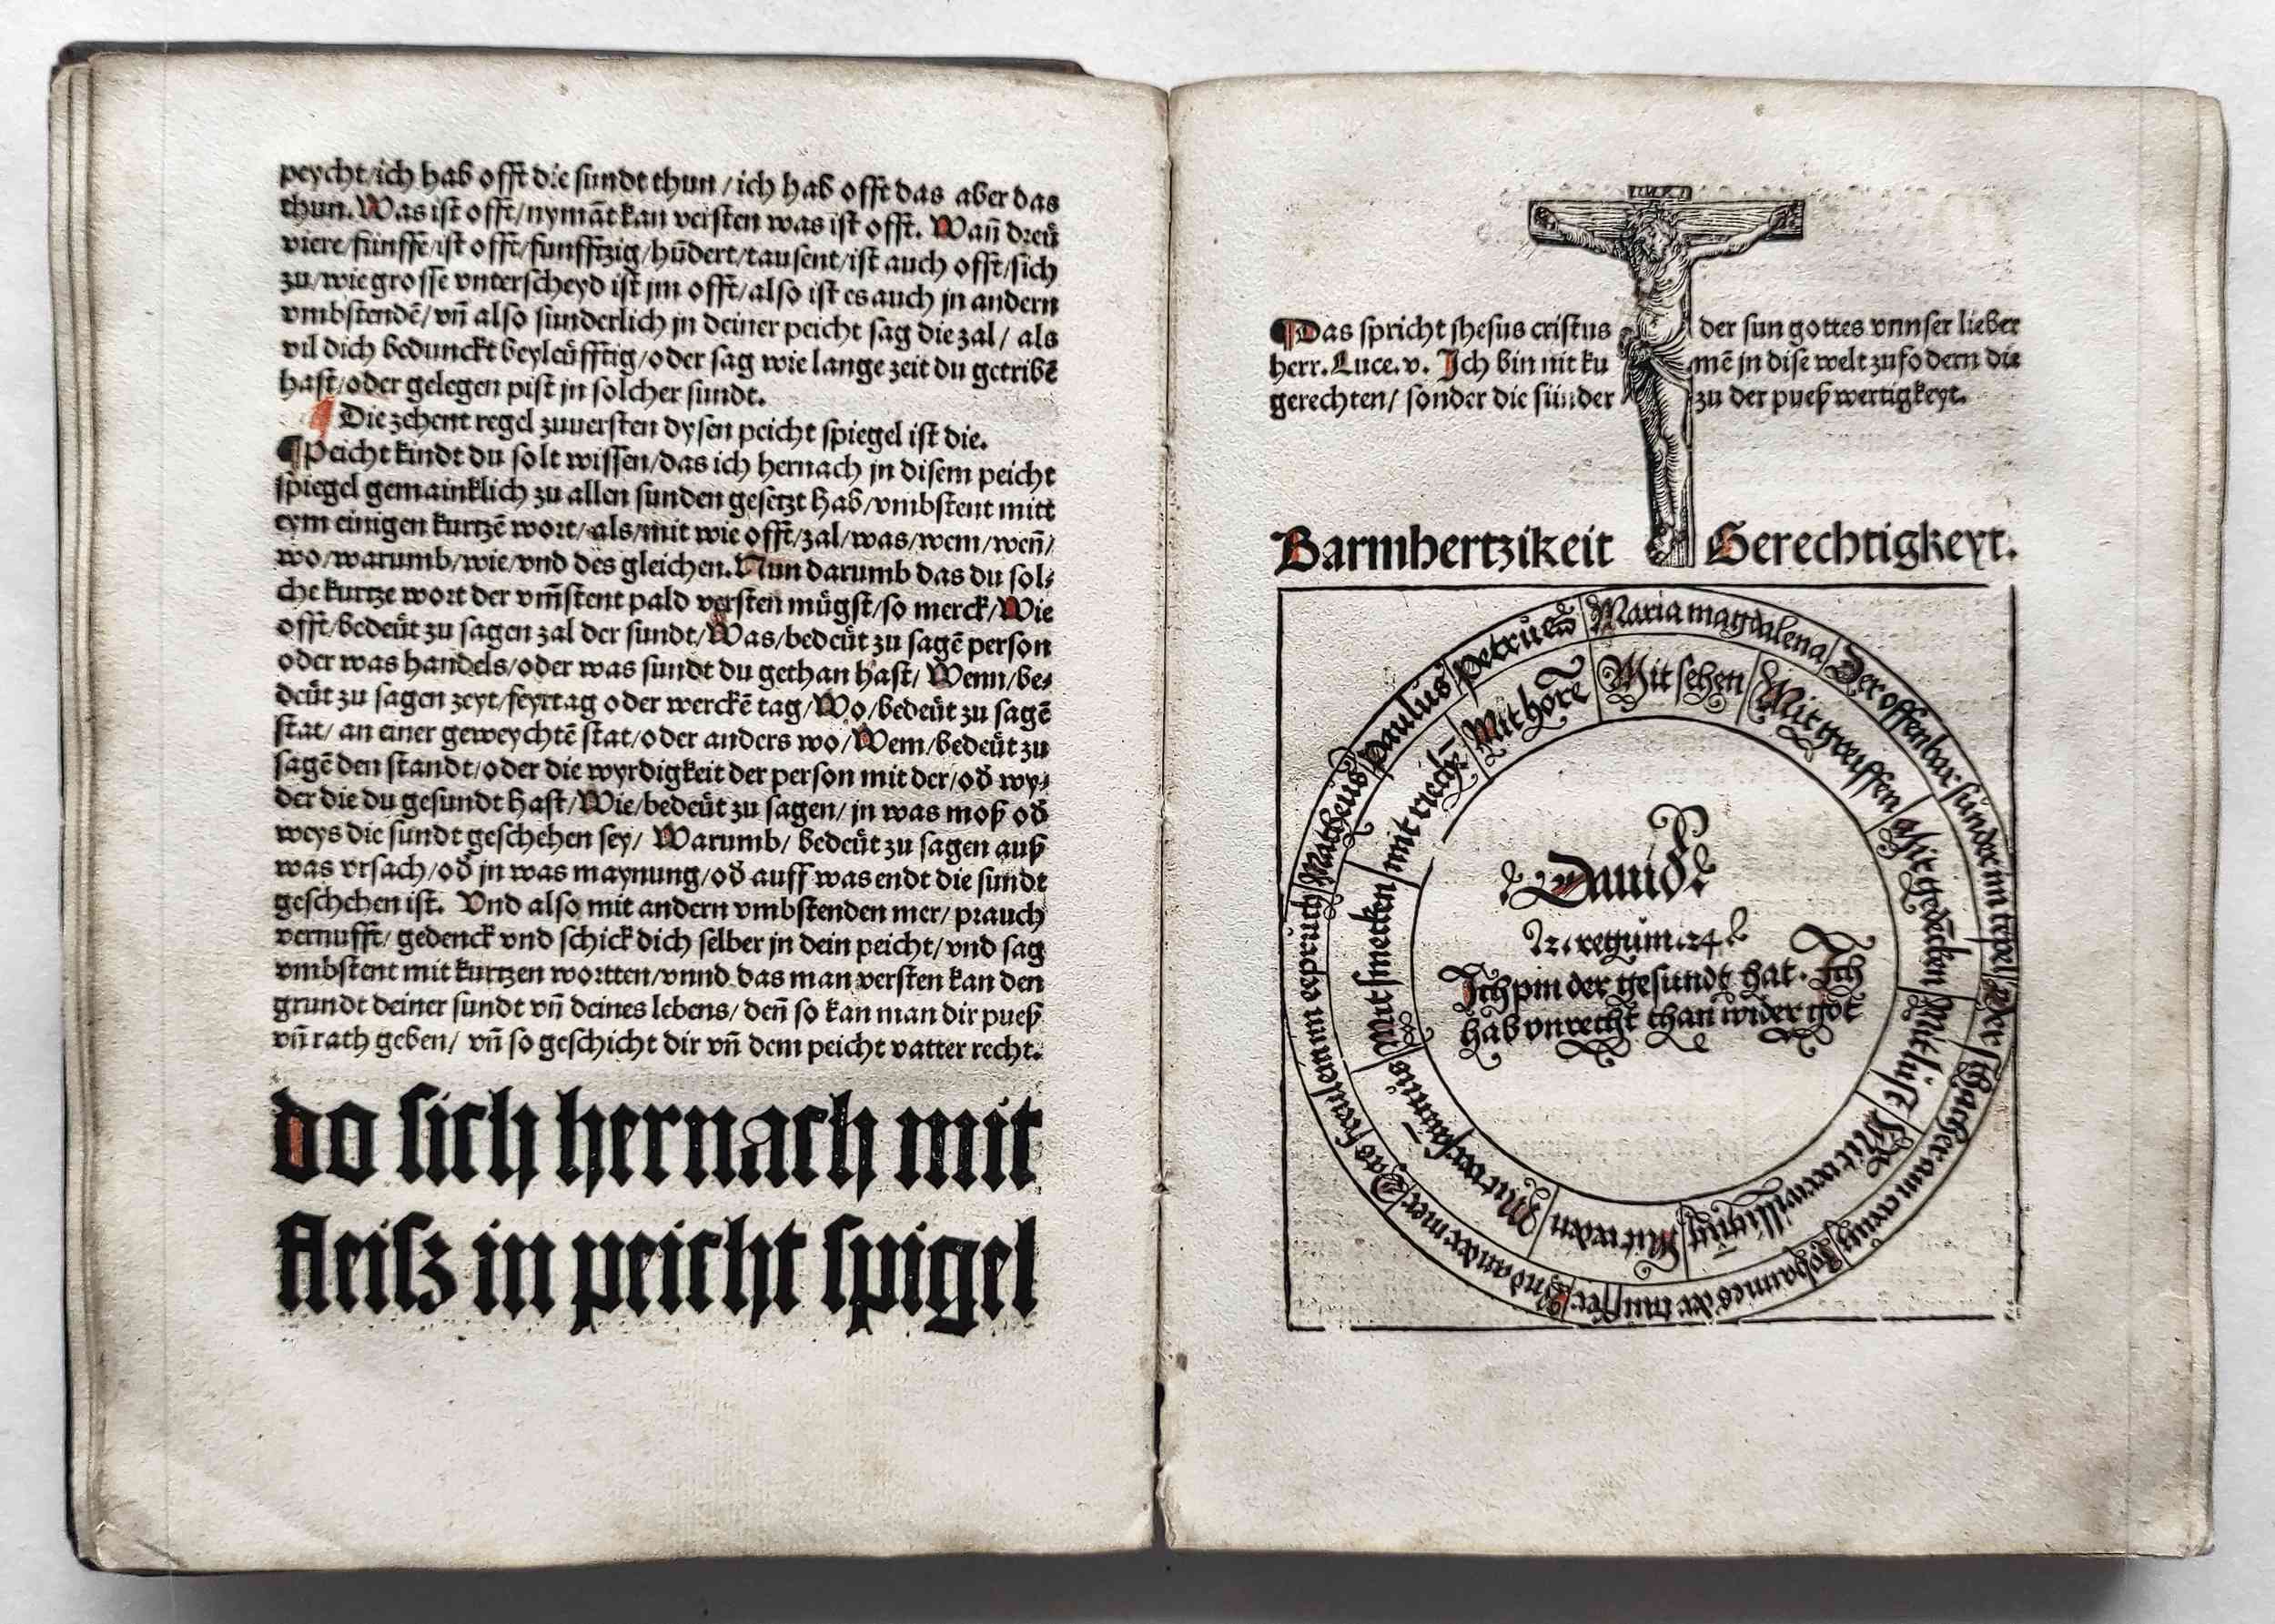 peycht/ich hab offt die sundt thun/ich hab offt das aber das
thun. Was ist offt/nymāt kan versten was ist offt. Wañ dreü
viere/fünffe/ist offt/funfftzig/hūdert/tausent/ist auch offt/sich
zu/wie grosse vnterscheyd ist jm offt/also ist es auch jn andern
vmbstendē/vñ also sunderlich jn deiner peicht sag die zal/als
vil dich bedunckt beyleüfftig/oder sag wie lange zeit du getribē
hast/oder gelegen pist jn solcher sundt.
¶ Die zehent regel zuuersten dysen peicht spiegel ist die.
¶Peicht kindt du solt wissen/das ich hernach jn disem peicht
spiegel gemainklich zu allen sunden gesetzt hab/vmbstent mitt
eym einigen kurtzē wort/als/mit wie offt/zal/was/wem/weñ/
wo/warumb/wie/vnd des gleichen. Nun darumb das du sol⸗
che kurtze wort der vm̄stent pald versten mügst/so merck/Wie
offt/bedeüt zu sagen zal der sundt/Was/bedeüt zu sagē person
oder was handels/oder was sundt du gethan hast/Wenn/be⸗
deüt zu sagen zeyt/feyrtag oder werckē tag/Wo/bedeüt zu sagē
stat/an einer geweychtē stat/oder anders wo/Wem/bedeüt zu
sagē den standt/oder die wyrdigkeit der person mit der/od̄ wy⸗
der die du gesundt hast/Wie/bedeüt zu sagen/jn was moß od̄
weys die sundt geschehen sey/Warumb/bedeüt zu sagen auß
was vrsach/od̄ jn was maynung/od̄ auff was endt die sundt
geschehen ist. Vnd also mit andern vmbstenden mer/prauch
vernufft/gedenck vnd schick dich selber jn dein peicht/vnd sag
vmbstent mit kurtzen wortten/vnnd das man versten kan den
grundt deiner sundt vñ deines lebens/deñ so kan man dir pueß
vñ rath geben/vñ so geschicht dir vñ dem peicht vatter recht.
do sich hernach mit
fleisz in peicht spigel
¶Das spricht jhesus cristus der sun gottes vnnser lieber
herr. Luce. v. Ich bin nit ku mē jn dise welt zufodern die
gerechten/sonder die sünder zu der pueß wertigkeyt.
Barmhertzikeit Gerechtigkeyt.
Maria magdalena
Der offenbar sünder im tēpel
Der schacher am creütz
Johannes der tauffer
Vnd ander mer
Matheus
Paulus
Mit sehen
Mit greyffen
Mit gedēcken
Mit lust
Mit verwilligūg
Mit reden
Mit versaumnus
Mit smecken
mit riechē
Mit hörē
Dauid
2. regum. 24
Ich pin der gesundt hat. Ich
hab vnrecht than wider got